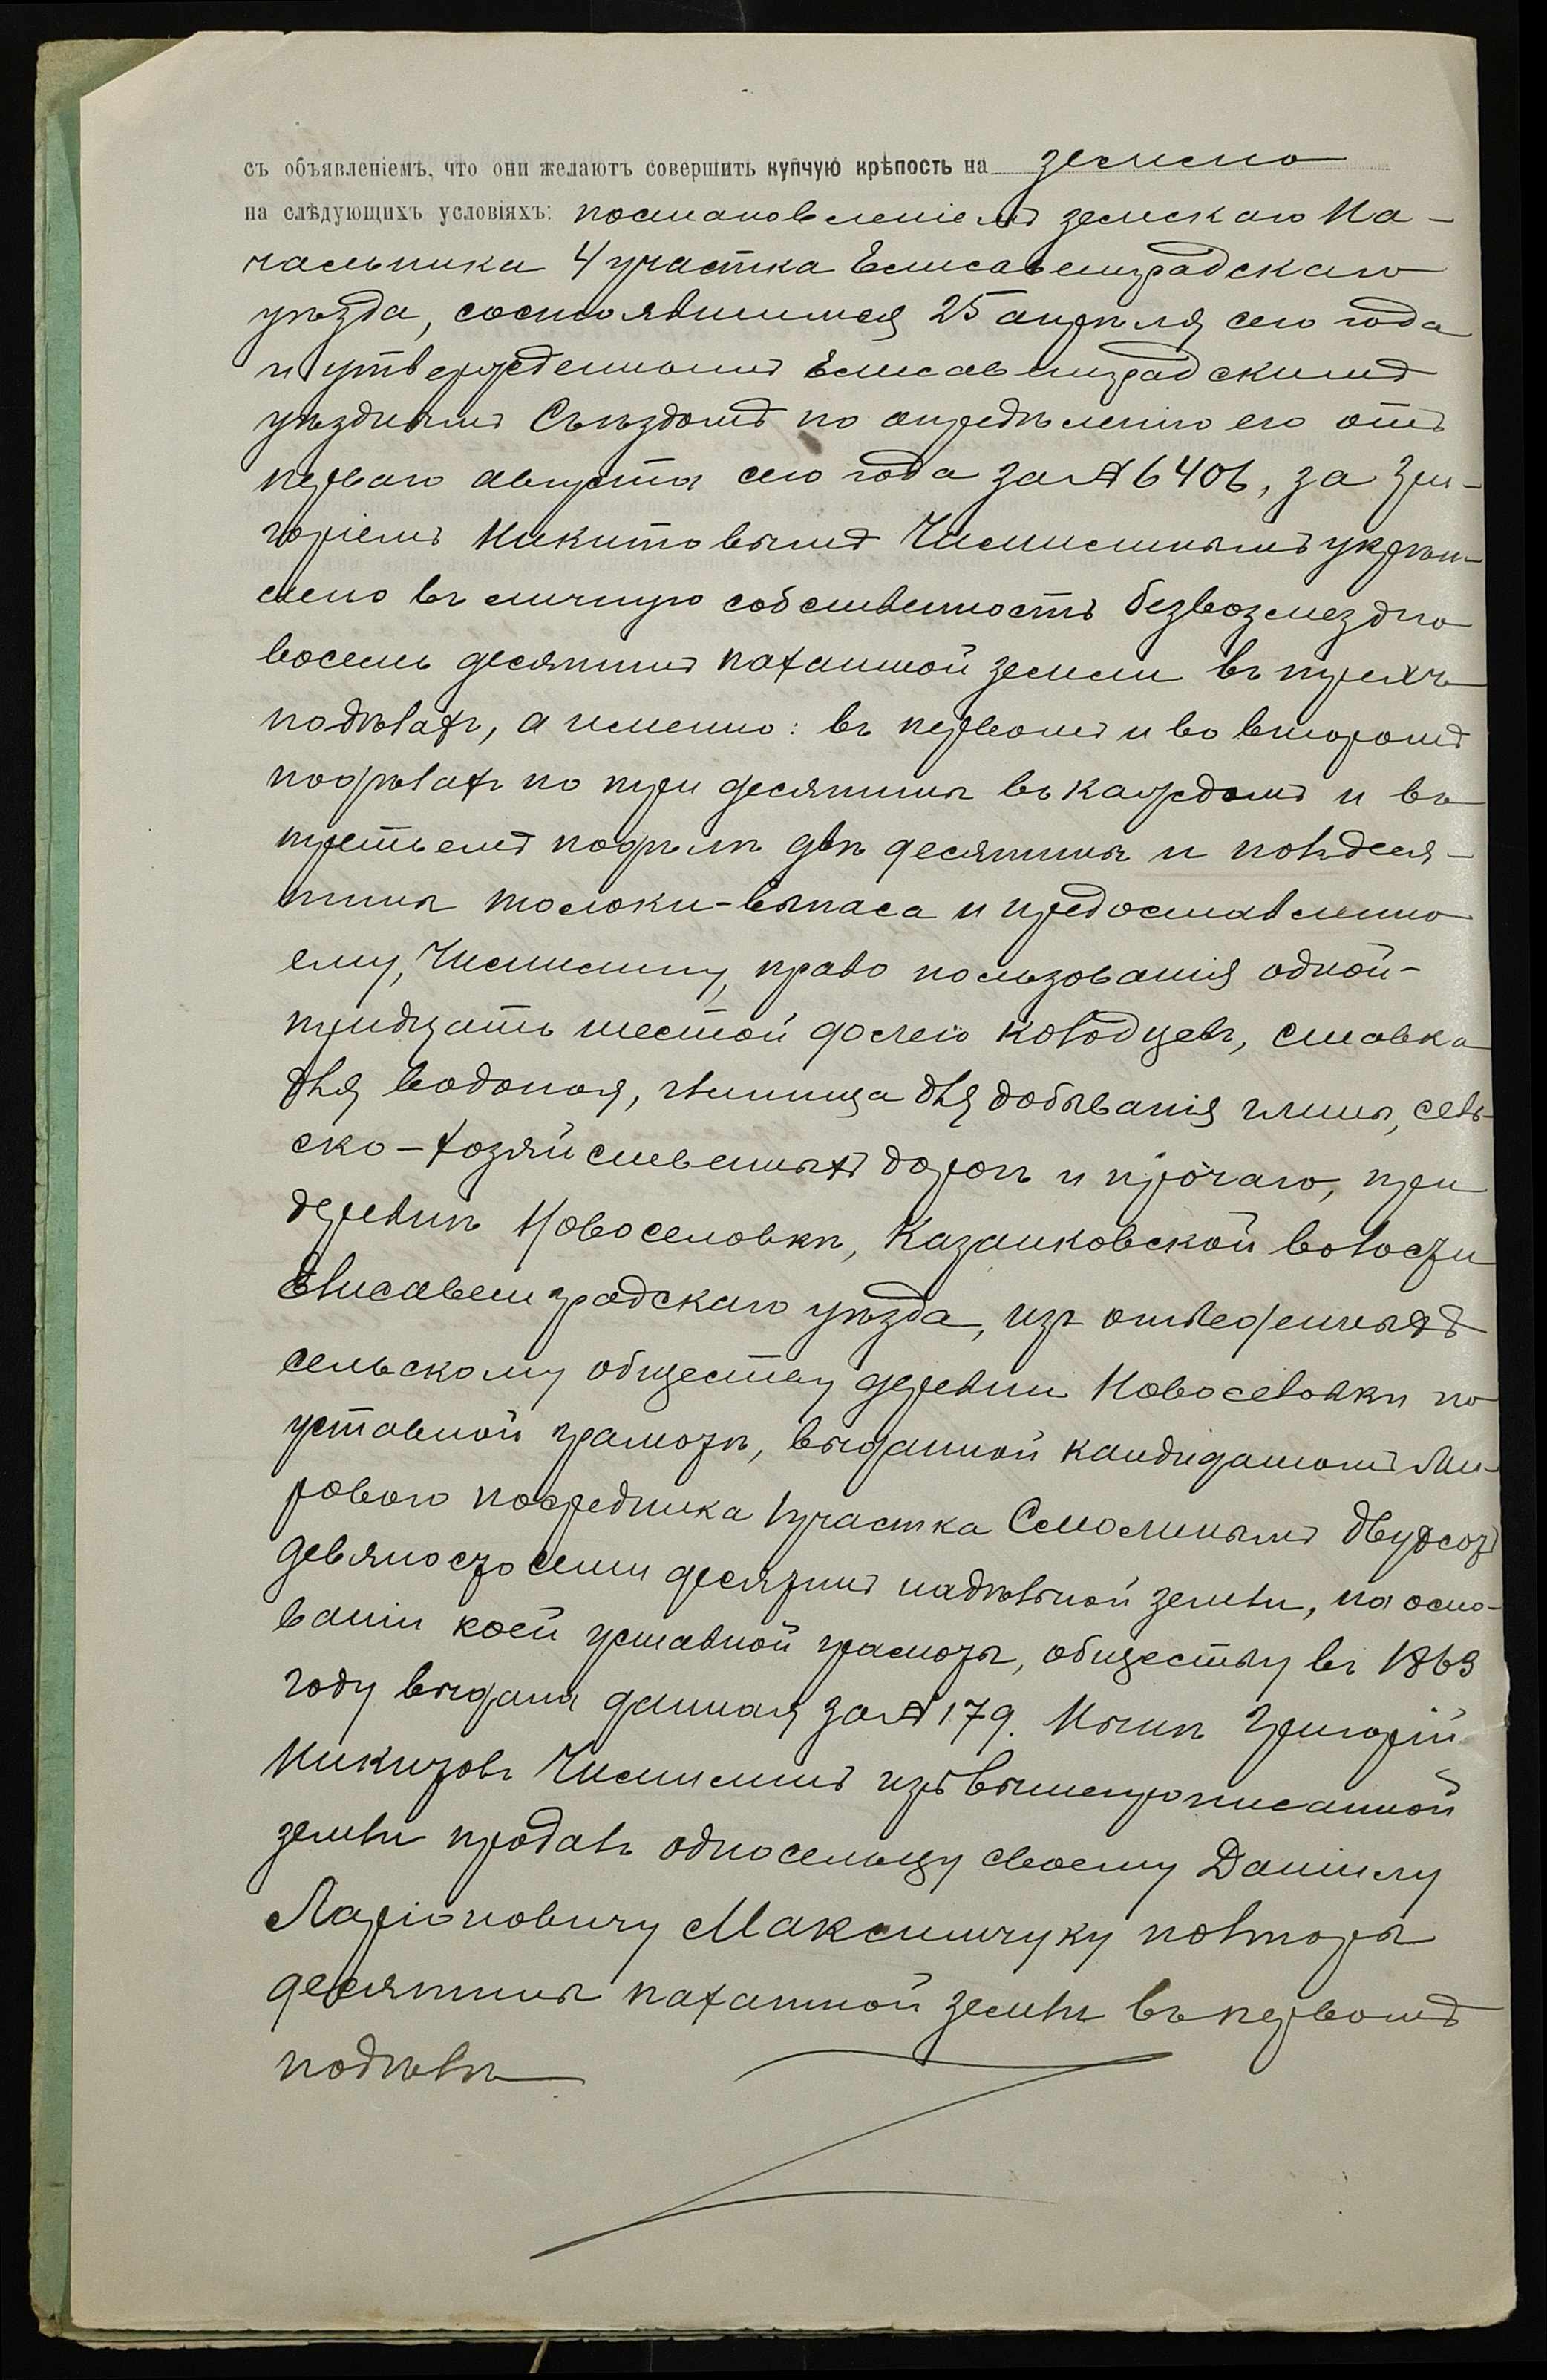 съ объявленіемъ, что они желаютъ совершить купчую крѣпость на землю
на слѣдующихъ условіяхъ: постановленіемъ земскаго На-
чальника 4 участка Елисаветградскаго
уѣзда, состоявшимся 25 апрѣля сего года
и утвержденнымъ Елисаветградскимъ
уѣзднымъ Съѣздомъ по опредѣленію его отъ
перваго августа сего года за № 6406, за Гри-
горіемъ Никитовымъ укрѣп-
лено въ личную собственность безвозмездно
восемь десятинъ пахатной земли въ трехъ
подѣлахъ, а именно: въ первомъ и во второмъ
подѣлахъ по три десятины въ каждомъ и въ
третьемъ подѣлѣ двѣ десятины и полдеся-
тины толоки-выпаса и предоставлено
ему, право пользованія одной-
тридцать шестой долею колодцевъ, ставка
для водопоя, глинища для добыванія глины, сель-
ско-хозяйственныхъ дорогъ и прочаго, при
деревнѣ Новоселовкѣ, Казанковской волости
Елисаветградскаго уѣзда, изъ отведенныхъ
сельскому обществу деревни Новоселовки по
уставной грамотѣ, выданной кандидатомъ Ми-
рового посредника 1 участка Смолинымъ двухсотъ
девяносто семи десятинъ надѣльной земли, на осно-
ваніи коей уставной грамоты, обществу въ 1863
году выдана данная за № 179. Нынѣ Григорій
Никитовъ изъ вышепрописанной
земли продалъ односельцу своему Даніилу
Ларіоновичу Максимчуку полторы
десятины пахатной земли въ первомъ
подѣлѣ